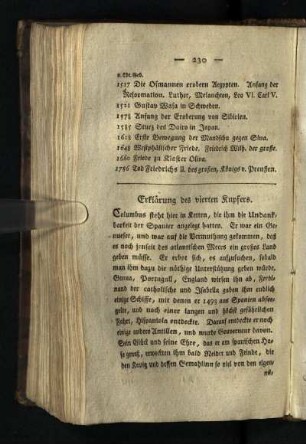 — 230 —
n. Chr. Geb.
1517 Die Osmannen erobern Aegypten. Anfang der
Reformation. Luther, Melancton, Leo VI. Carl V.
1521 Gustav Wasa in Schweden.
1578 Anfang der Eroberung von Sibirien.
1585 Sturz des Dairo in Japan.
1618 Erste Bewegung der Mandschu gegen Sina.
1648 Westphälischer Friede. Friedrich Wilh. der große.
1660 Friede zu Kloster Oliva.
1786 Tod Friedrichs II. des großen, Königs v. Preussen.
Erklärung des vierten Kupfers.
Columbus steht hier in Ketten, die ihm die Undank-
barkeit der Spanier angelegt hatten. Er war ein Ge-
nueser, und war auf die Vermuthung gekommen, daß
es noch jenseit des atlantischen Meers ein großes Land
geben müsse. Er erbot sich, es aufzusuchen, sobald
man ihm dazu die nöthige Unterstützung geben würde.
Genua, Portugall, England wiesen ihn ab, Ferdi-
nand der catholische und Isabella gaben ihm endlich
einige Schiffe, mit denen er 1492 aus Spanien abse-
gelte, und nach einer langen und höchst gefährlichen
Fahrt, Hispaniola entdeckte. Darauf entdeckte er noch
einige andere Antillen, und wurde Gouverneur davon.
Sein Glück und seine Ehre, das er am spanischen Ho-
fe genoß, erweckten ihm bald Neider und Feinde, die
den König und dessen Gemahlinn so viel von den eigen-
nü-